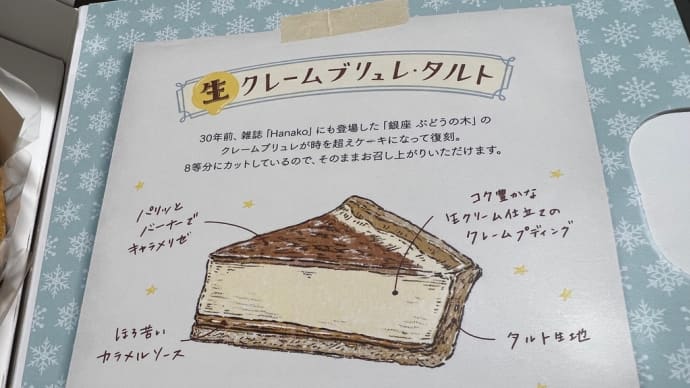 生クレームブリュレ・タルト
30年前、雑誌「Hanako」にも登場した「銀座 ぶどうの木」の
クレームブリュレが時を超えケーキになって復刻。
8等分にカットしているので、そのままお召し上がりいただけます。
パリッと
バーナーで
キャラメリゼ
コク豊かな
生クリーム仕立ての
クレームプディング
ほろ苦い
カラメルソース
タルト生地